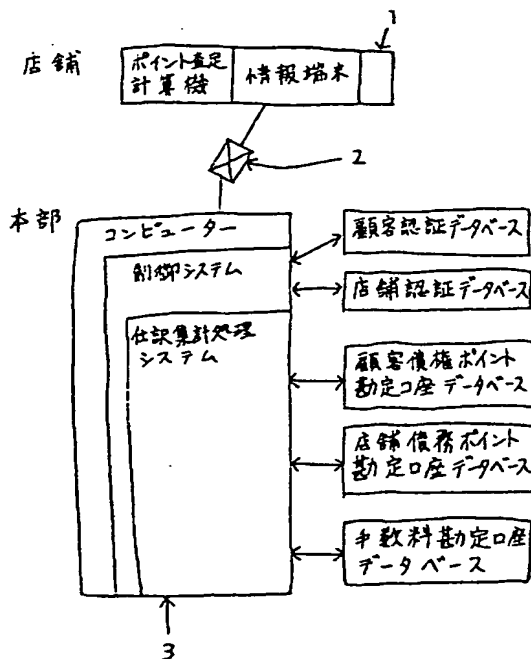 1
店舗
ポイント査定
計算機
情報端末
2
本部
コンピューター
制御システム
仕訳集計処理
システム
顧客認証データベース
店舗認証データベース
顧客債権ポイント
勘定口座データベース
店舗債務ポイント
勘定口座データベース
手数料勘定口座
データベース
3